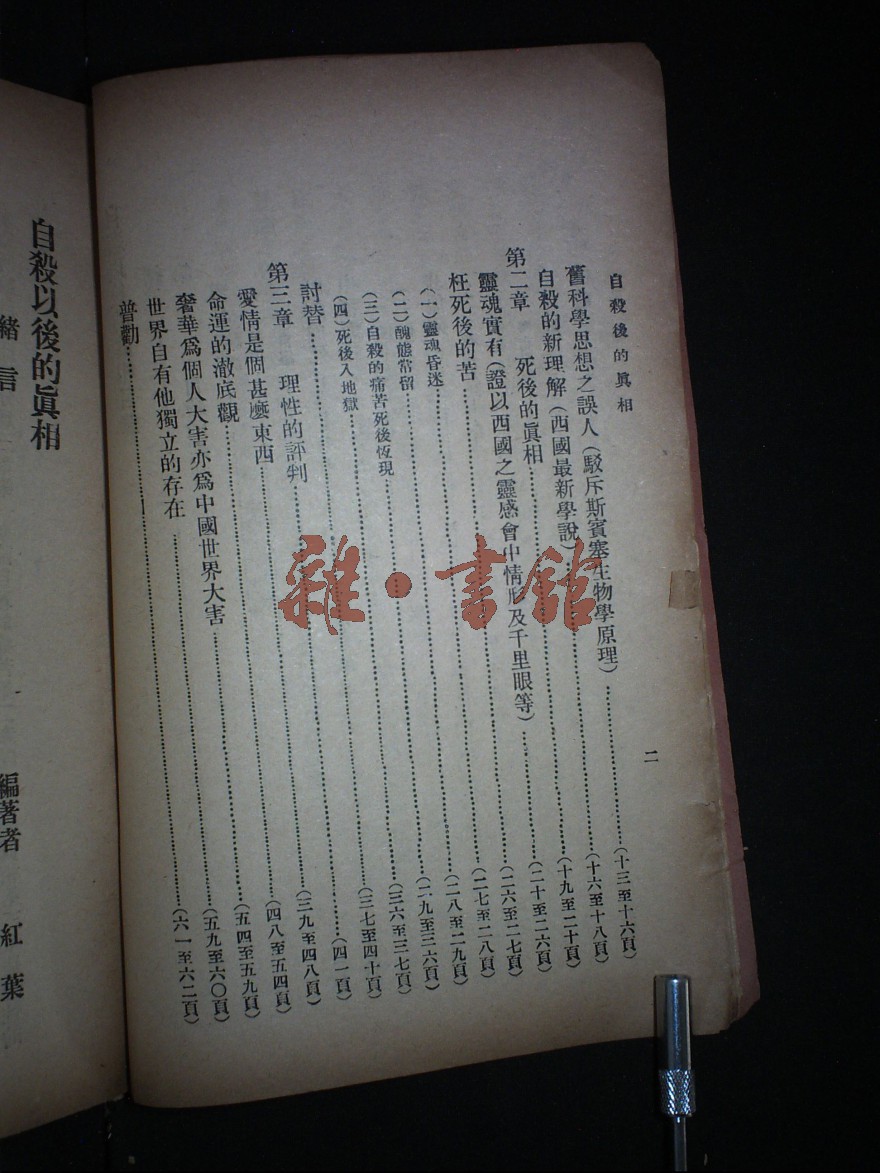 自殺後的眞相 二
舊科學思想之誤人(駁斥斯賓塞生物學原理)…(十三至十六頁)
自殺的新理解(西國最新學說)…(十六至十八頁)
第二章 死後的眞相…(十九至二十頁)
靈魂實有(證以西國之靈感會中情形及千里眼等)…(二十至二六頁)
枉死後的苦…(二六至二七頁)
(一)靈魂昏迷…(二七至二八頁)
(二)醜態常留…(二八至二九頁)
(三)自殺的痛苦死後恆現…(二九至三六頁)
(四)死後入地獄…(三六至三七頁)
討替…(三七至四十頁)
第三章 理性的評判…(四一頁)
愛情是個甚麼東西…(三九至四八頁)
命運的澈底觀…(四八至五四頁)
奢華爲個人大害亦爲中國世界大害…(五四至五九頁)
世界自有他獨立的存在…(五九至六〇頁)
普勸…(六一至六二頁)
自殺以後的眞相
編著者 紅葉
緒言
雜·書館